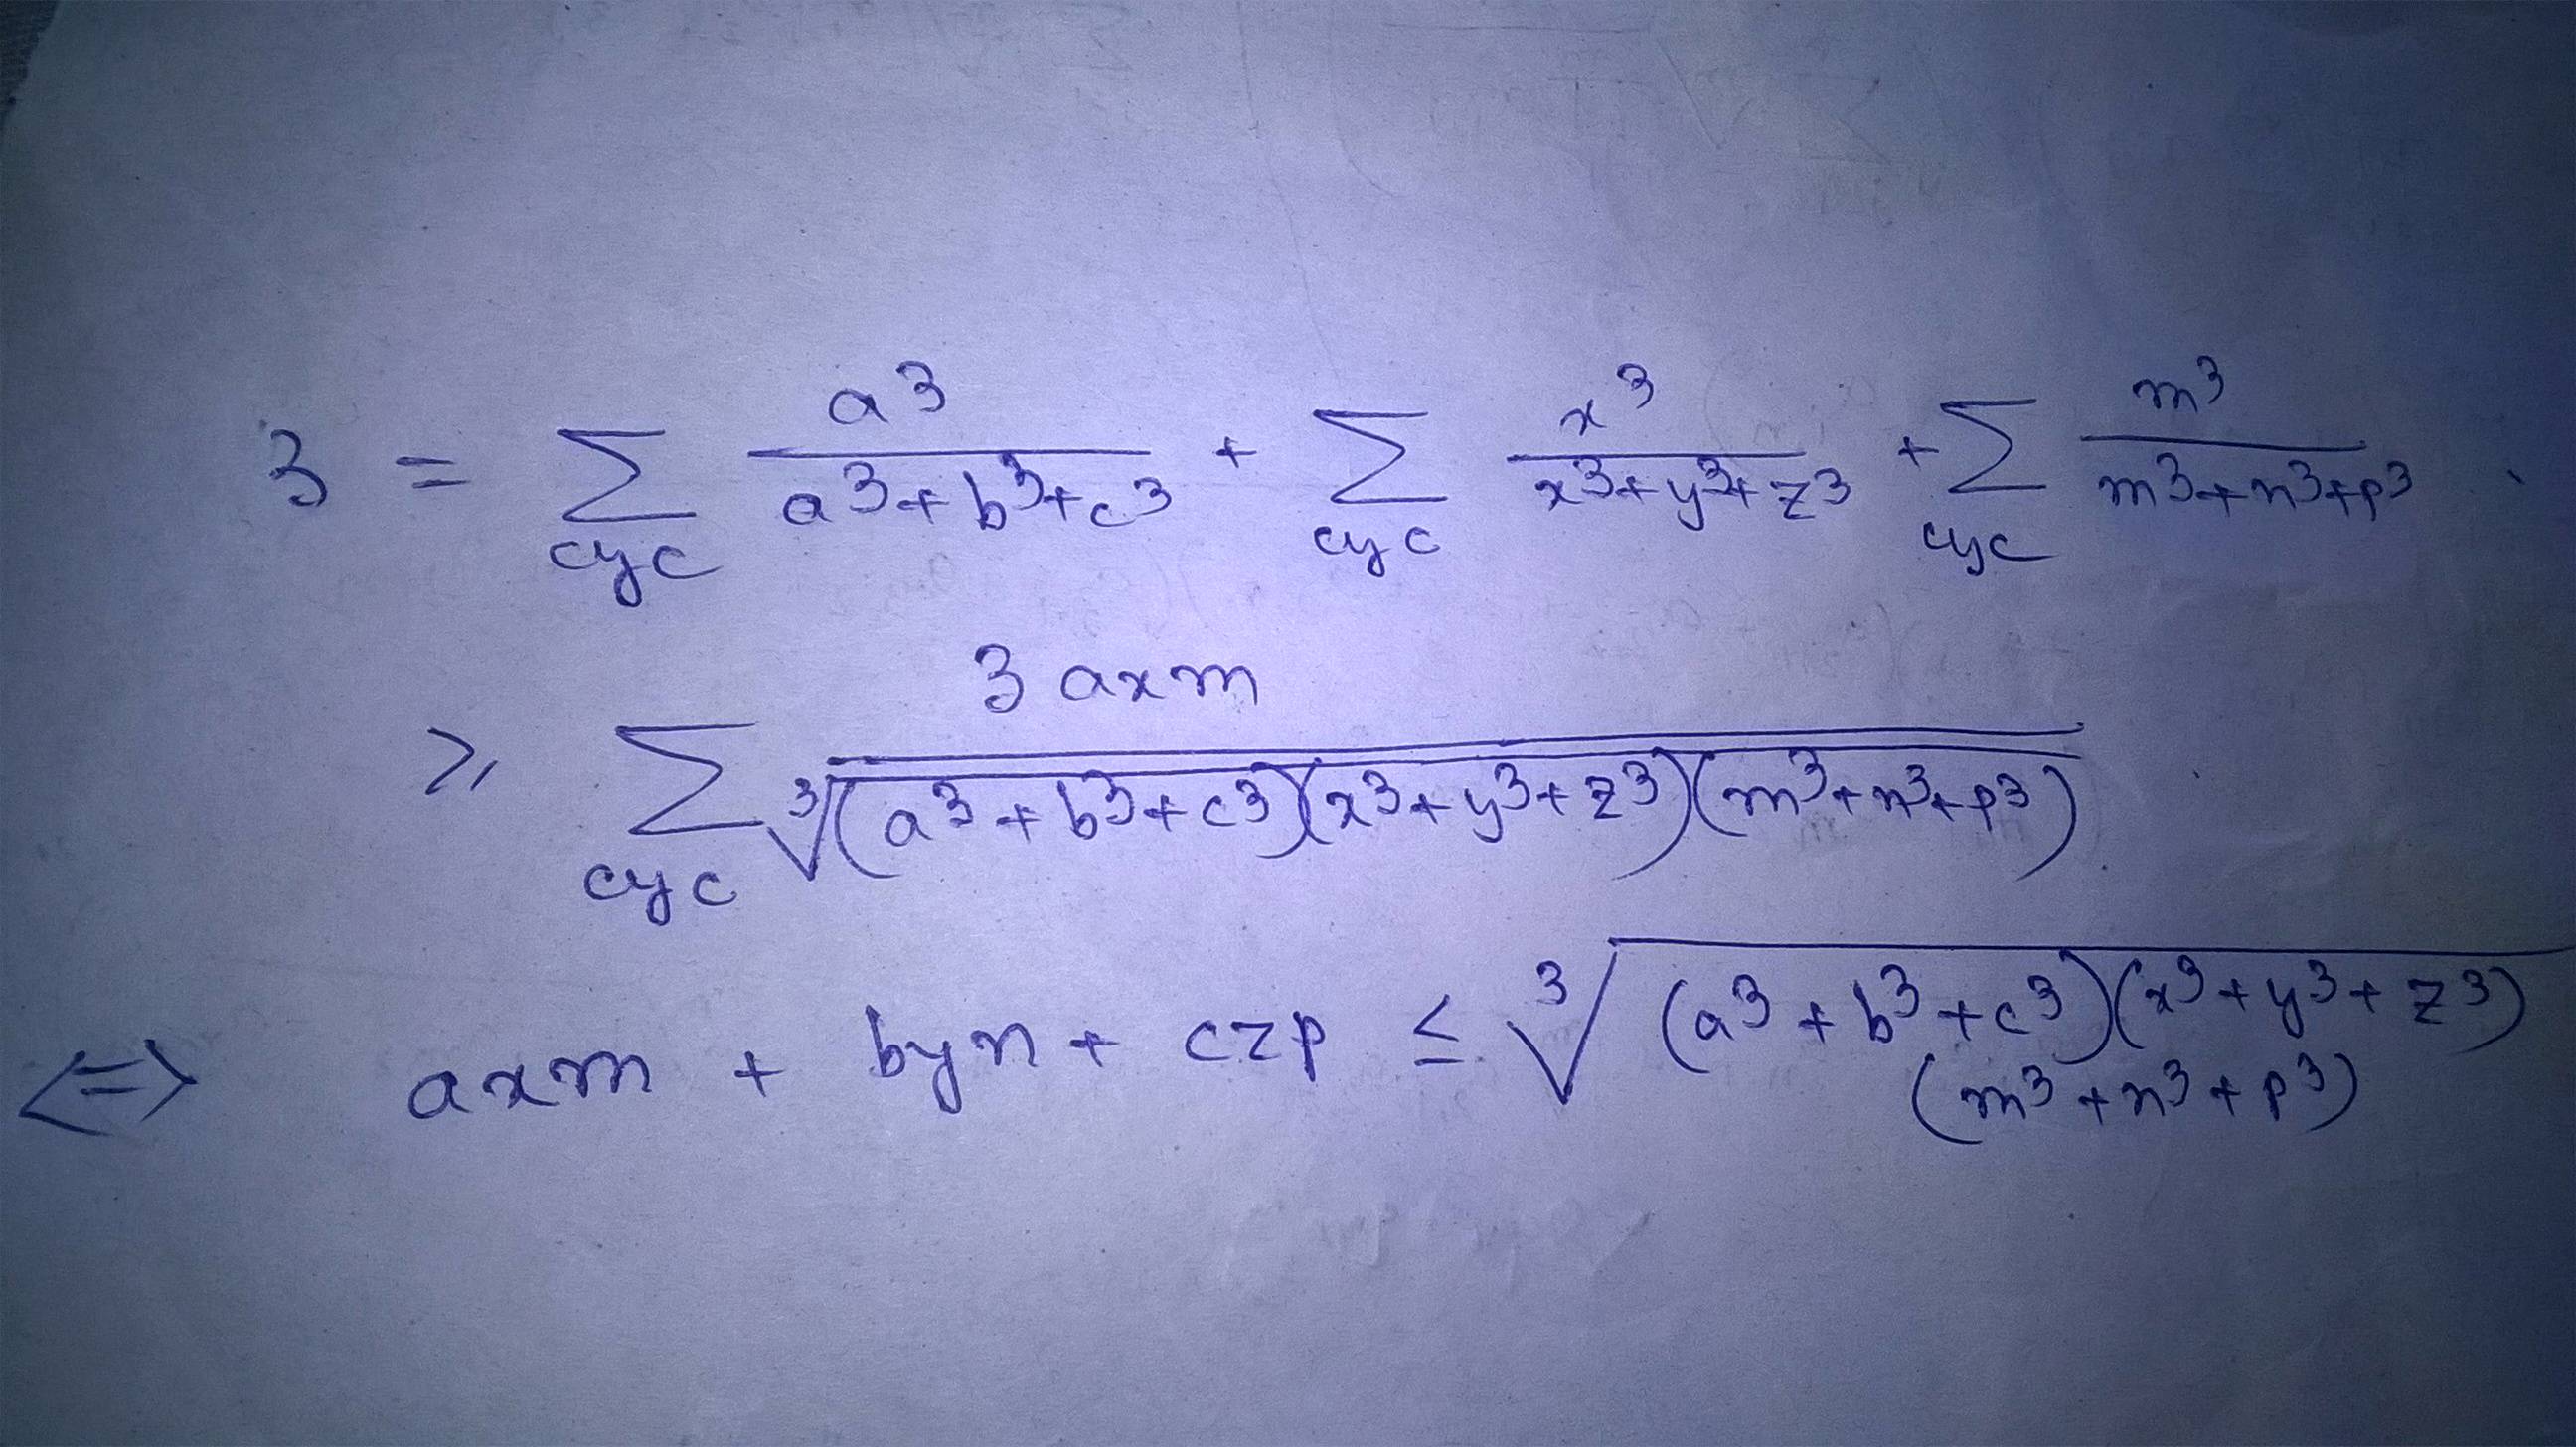 3 = ∑cyc a³/(a³+b³+c³) + ∑cyc x³/(x³+y³+z³) + ∑cyc m³/(m³+n³+p³)
≥ ∑cyc 3axm/∛((a³+b³+c³)(x³+y³+z³)(m³+n³+p³))
<=> axm + byn + czp ≤ ∛((a³+b³+c³)(x³+y³+z³)
(m³+n³+p³))